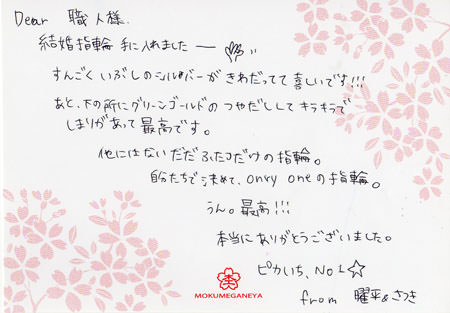 Dear 職人様.
結婚指輪 手に入れました ー
すんごく いぶしのシルバーが きわだってて 喜しいです!!!
あと、下の所にグリーンゴールドの つやだしして キラキラで
しまりがあって 最高です。
他にはないただふたつだけの指輪。
自分たちで決めて、only oneの指輪。
うん。最高!!!
本当にありがとうございました。
ピカいち、No1☆
from 曜平&さつき
MOKUMEGANEYA